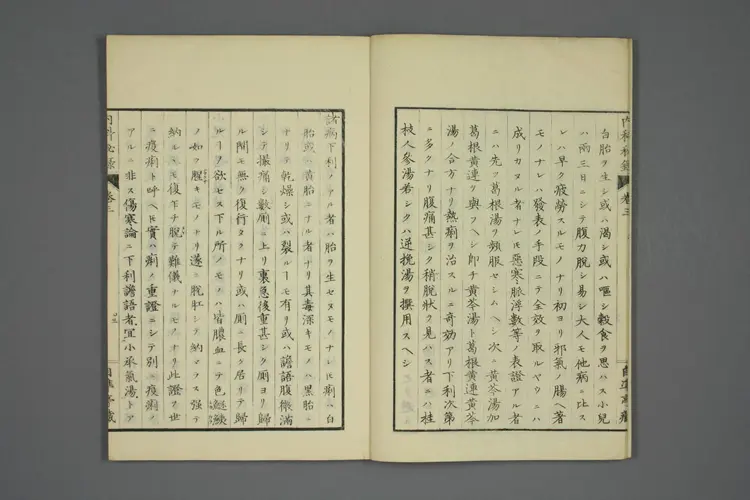 内科秘録
卷三
白胎ヲ生シ或ハ渴シ或ハ嘔シ穀食ヲ思ハス小兒
ハ兩三日ニシテ腹力脫シ易シ大人モ他病ニ比ス
レハ早ク疲勞スルモノナリ初ヨリ邪氣ノ腸ヘ著
モノナレハ發表ノ手段ニテ全效ヲ取ルヤウニハ
成リカヌル者ナレ𪜈惡寒脈浮數等ノ表證アル者
ニハ先ツ葛根湯ヲ頻服セシムヘシ次ニ黃芩湯加
葛根黃連ヲ與フヘシ卽チ黃芩湯ト葛根黃連黃芩
湯ノ合方ナリ熱痢ヲ治スルニ奇效アリ下利次第
ニ多クナリ腹痛甚シク稍脫狀ヲ見ハス者ニハ桂
枝人參湯若シクハ逆挽湯ヲ撰用スヘシ
諸病下利ノアル者ハ胎ヲ生セヌモノナレ𪜈痢ハ白
胎或ハ黃胎ニナル者ナリ其毒深キモノハ黑胎ニ
ナリテ乾燥シ或ハ裂ルヿモ有リ或ハ譫語腹微滿
シテ攥痛シ數厠ニ上リ裏急後重甚シク厠ヨリ歸
ル間モ無ク復行タクナリ或ハ厠ニ長ク居リテ歸
ルヿヲ欲セス下ル所ノモノハ皆膿血ニテ色
ノ如ク腥キモノナリ遂ニ脫肛シテ納マラス强テ
納ルモ復下チ脫テ難儀ナルモノナリ此證ヲ世
ニ疫痢ト呼ヘ𪜈實ハ痢ノ重證ニシテ別ニ疫痢ノ
アルニ非ス傷寒論ニ下利譫語者宜小承氣湯トア
內科秘錄
卷三